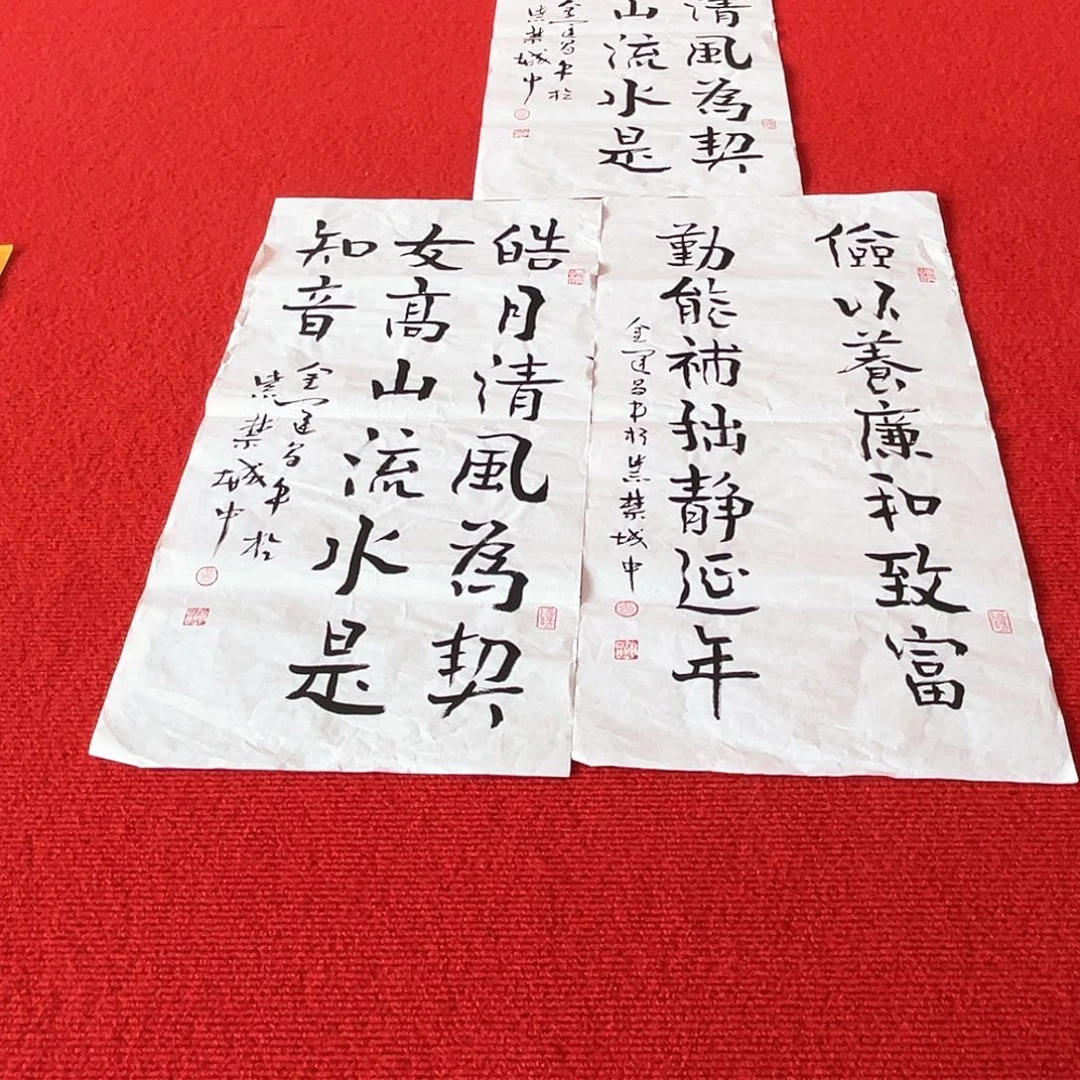 清風為契
山流水是
金運昌书於
紫禁城中
儉以養廉和致富
勤能補拙静延年
金運昌书於紫禁城中
皓月清風為契
友高山流水是
知音
金運昌书於
紫禁城中